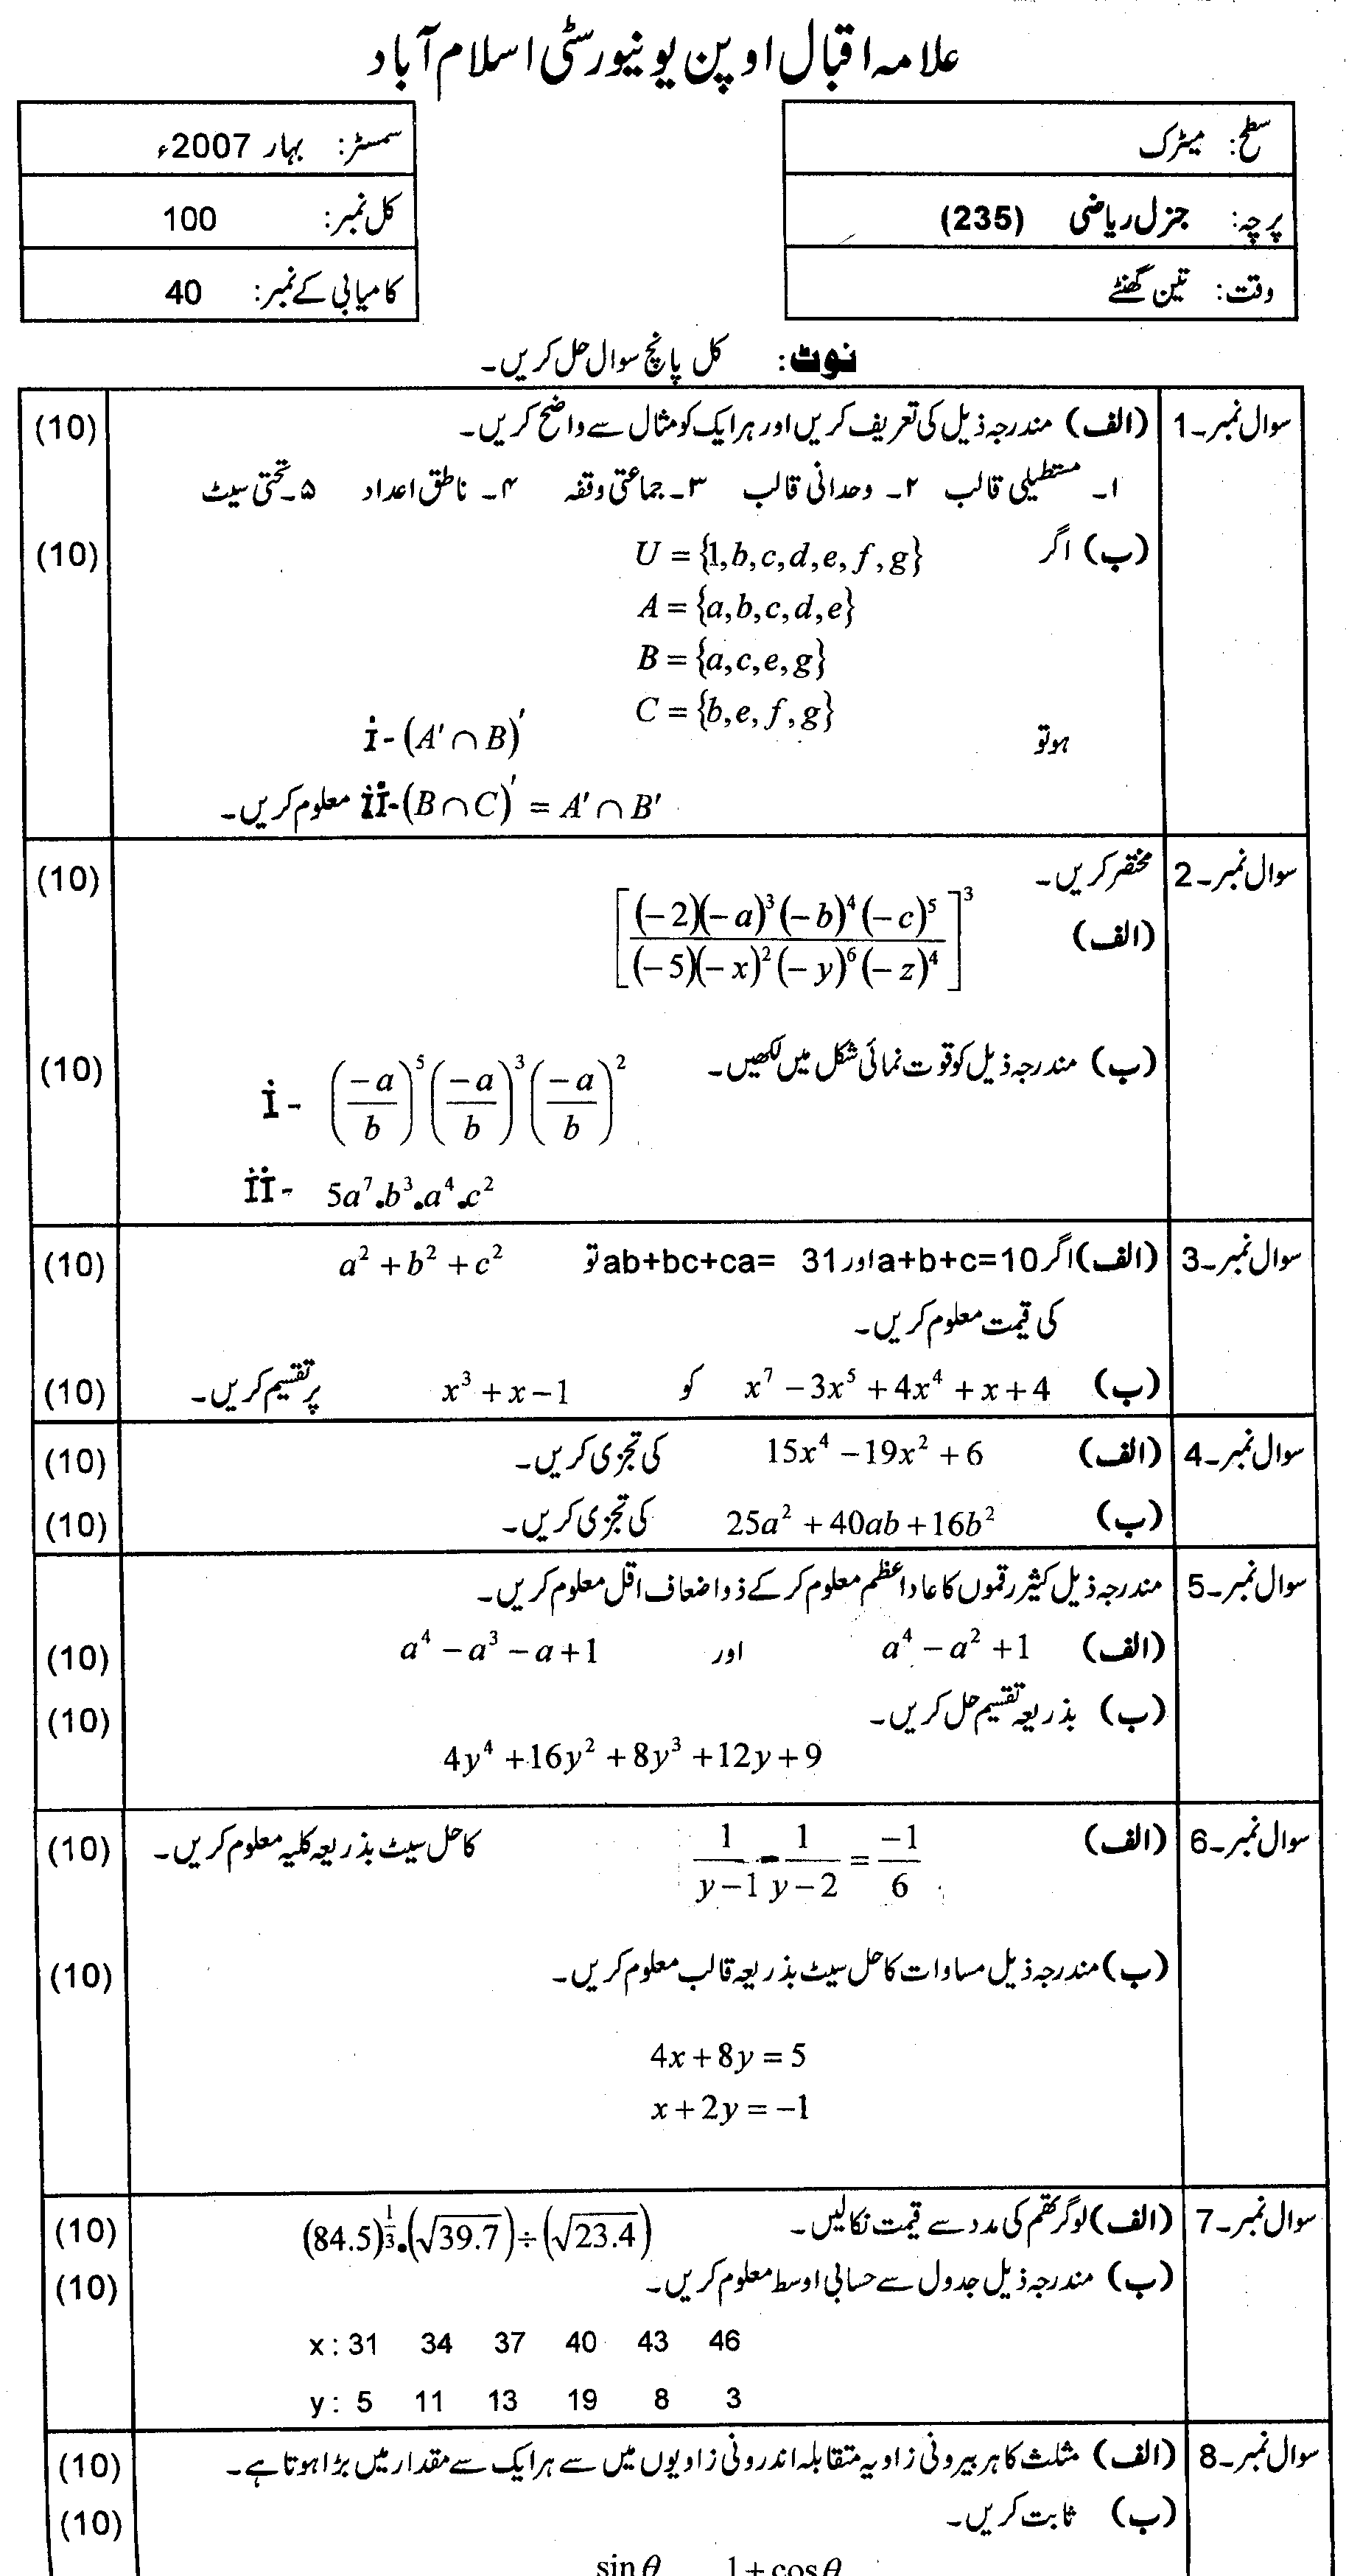 علامہ اقبال اوپن یونیورسٹی اسلام آباد
سطح: میٹرک
سمسٹر: بہار 2007ء
پرچہ: جنرل ریاضی (235)
کل نمبر: 100
وقت: تین گھنٹے
کامیابی کے نمبر: 40
نوٹ: کل پانچ سوال حل کریں۔
سوال نمبر۔1 (الف) مندرجہ ذیل کی تعریف کریں اور ہر ایک کو مثال سے واضح کریں۔ (10)
۱۔ مستطیلی قالب ۲۔ وحدانی قالب ۳۔ جماعتی وقفہ ۴۔ ناطق اعداد ۵۔ تحتی سیٹ
(ب) اگر U = {1,b,c,d,e,f,g} (10)
A = {a,b,c,d,e}
B = {a,c,e,g}
C = {b,e,f,g}
ہو تو i- (A′ ∩ B)′
ii- (B ∩ C)′ = A′ ∩ B′ معلوم کریں۔
سوال نمبر۔2 مختصر کریں۔ (10)
(الف) [(−2)(−a)³(−b)⁴(−c)⁵ / (−5)(−x)²(−y)⁶(−z)⁴]³
(ب) مندرجہ ذیل کو قوت نمائی شکل میں لکھیں۔ (10)
i- (−a/b)⁵ (−a/b)³ (−a/b)²
ii- 5a⁷.b³.a⁴.c²
سوال نمبر۔3 (الف) اگر a+b+c=10 اور ab+bc+ca= 31 تو a² + b² + c² (10)
کی قیمت معلوم کریں۔
(ب) x⁷ − 3x⁵ + 4x⁴ + x + 4 کو x³ + x − 1 پر تقسیم کریں۔ (10)
سوال نمبر۔4 (الف) 15x⁴ − 19x² + 6 کی تجزی کریں۔ (10)
(ب) 25a² + 40ab + 16b² کی تجزی کریں۔ (10)
سوال نمبر۔5 مندرجہ ذیل کثیر رقموں کا عاداعظم معلوم کر کے ذواضعاف اقل معلوم کریں۔
(الف) a⁴ − a² + 1 اور a⁴ − a³ − a + 1 (10)
(ب) بذریعہ تقسیم حل کریں۔ (10)
4y⁴ + 16y² + 8y³ + 12y + 9
سوال نمبر۔6 (الف) 1/(y−1) - 1/(y−2) = −1/6 کا حل سیٹ بذریعہ کلیہ معلوم کریں۔ (10)
(ب) مندرجہ ذیل مساوات کا حل سیٹ بذریعہ قالب معلوم کریں۔ (10)
4x + 8y = 5
x + 2y = −1
سوال نمبر۔7 (الف) لوگرتھم کی مدد سے قیمت نکالیں۔ (84.5)^(1/3).(√39.7) ÷ (√23.4) (10)
(ب) مندرجہ ذیل جدول سے حسابی اوسط معلوم کریں۔ (10)
x : 31 34 37 40 43 46
y : 5 11 13 19 8 3
سوال نمبر۔8 (الف) مثلث کا ہر بیرونی زاویہ متقابلہ اندرونی زاویوں میں سے ہر ایک سے مقدار میں بڑا ہوتا ہے۔ (10)
(ب) ثابت کریں۔ (10)
sin θ 1 + cos θ